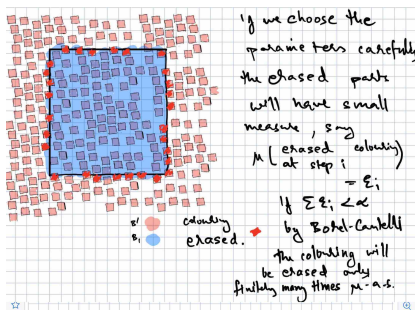 if we choose the
parameters carefully
the erased parts
will have small
measure, say
μ( erased colouring
at step i )
= ε_i
if Σ ε_i < α
by Borel-Cantelli
the colouring will
be erased only
finitely many times μ-a.s.
B' colouring
B₁ erased.